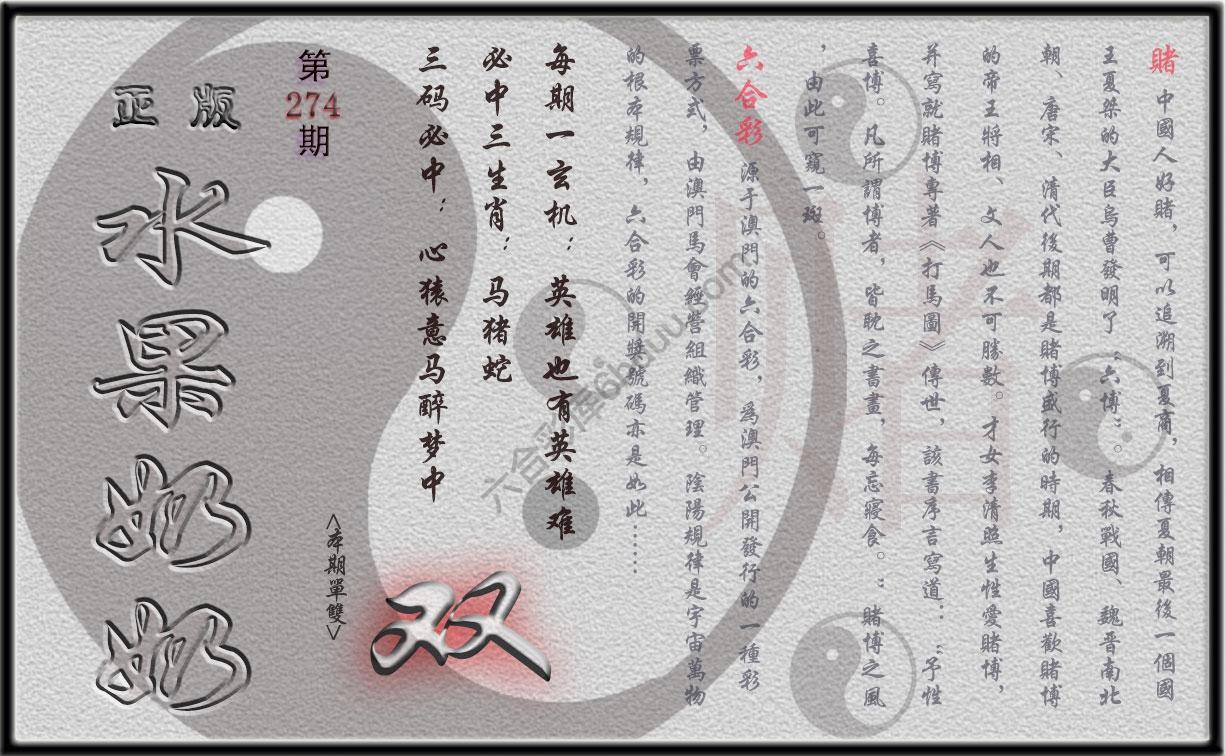 賭 中國人好賭，可以追溯到夏商，相傳夏朝最後一個國
王夏桀的大臣烏曹發明了“六博”。春秋戰國、魏晋南北
朝、唐宋、清代後期都是賭博盛行的時期，中國喜歡賭博
的帝王將相、文人也不可勝數。才女李清照生性愛賭博，
并寫就賭博專著《打馬圖》傳世，該書序言寫道：“予性
喜博。凡所謂博者，皆耽之書畫，每忘寢食。”賭博之風
，由此可窺一斑。
六合彩 源于澳門的六合彩，爲澳門公開發行的一種彩
票方式，由澳門馬會經營組織管理。陰陽規律是宇宙萬物
的根本規律，六合彩的開獎號碼亦是如此……
每期一玄机：英雄也有英雄难
必中三生肖：马猪蛇
三码必中：心猿意马醉梦中
第
274
期
<本期單雙>
双
正版
水果奶奶
赌
六合彩库6bduu.com